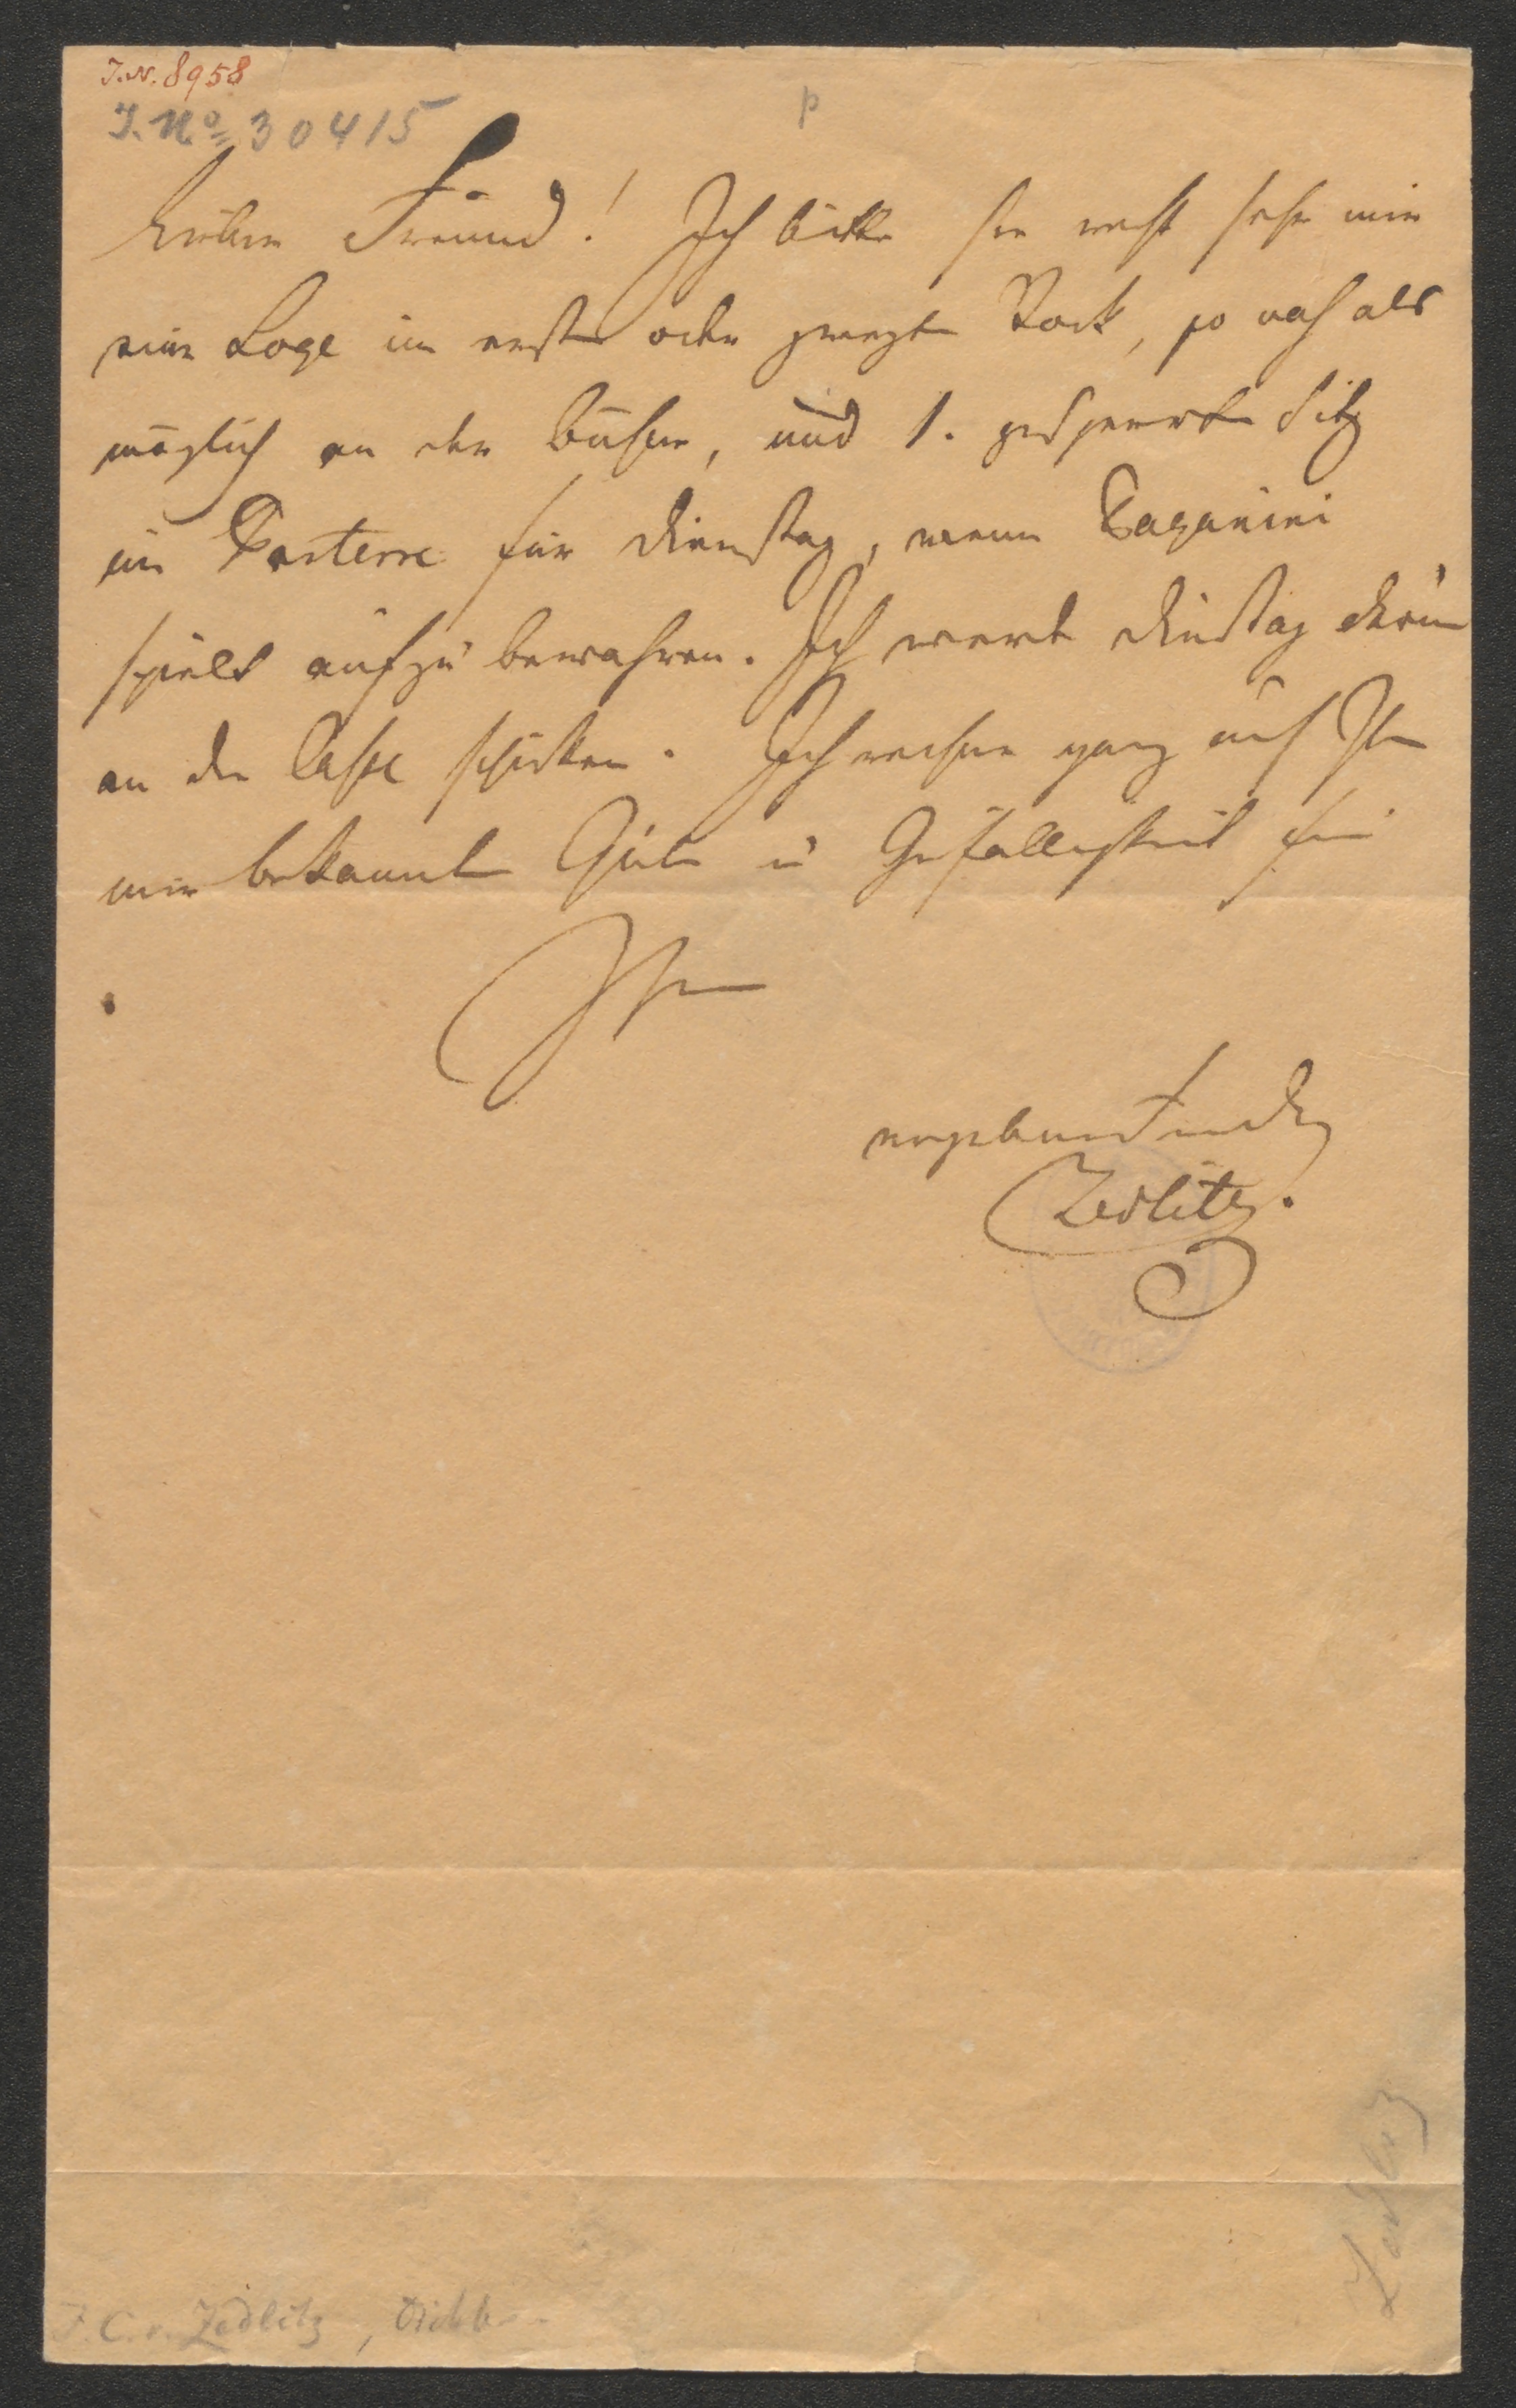 J.N. 8958
J. No 30415
p
Lieber Freund! Ich bitte Sie recht sehr mir
eine Loge im ersten oder zweyten Stock, so nah als
möglich an der Bühne, und 1. gesperrten Sitz
im Parterre für Dienstag, wenn Paganini
spielt aufzubewahren. Ich werde Dienstag darum
an die Casse schicken. Ich rechne ganz auf Ihre
mir bekannte Güte u Gefälligkeit für
Ihren
ergebensten
Zedlitz.
Zedlitz
J. C. v. Zedlitz, Dichter